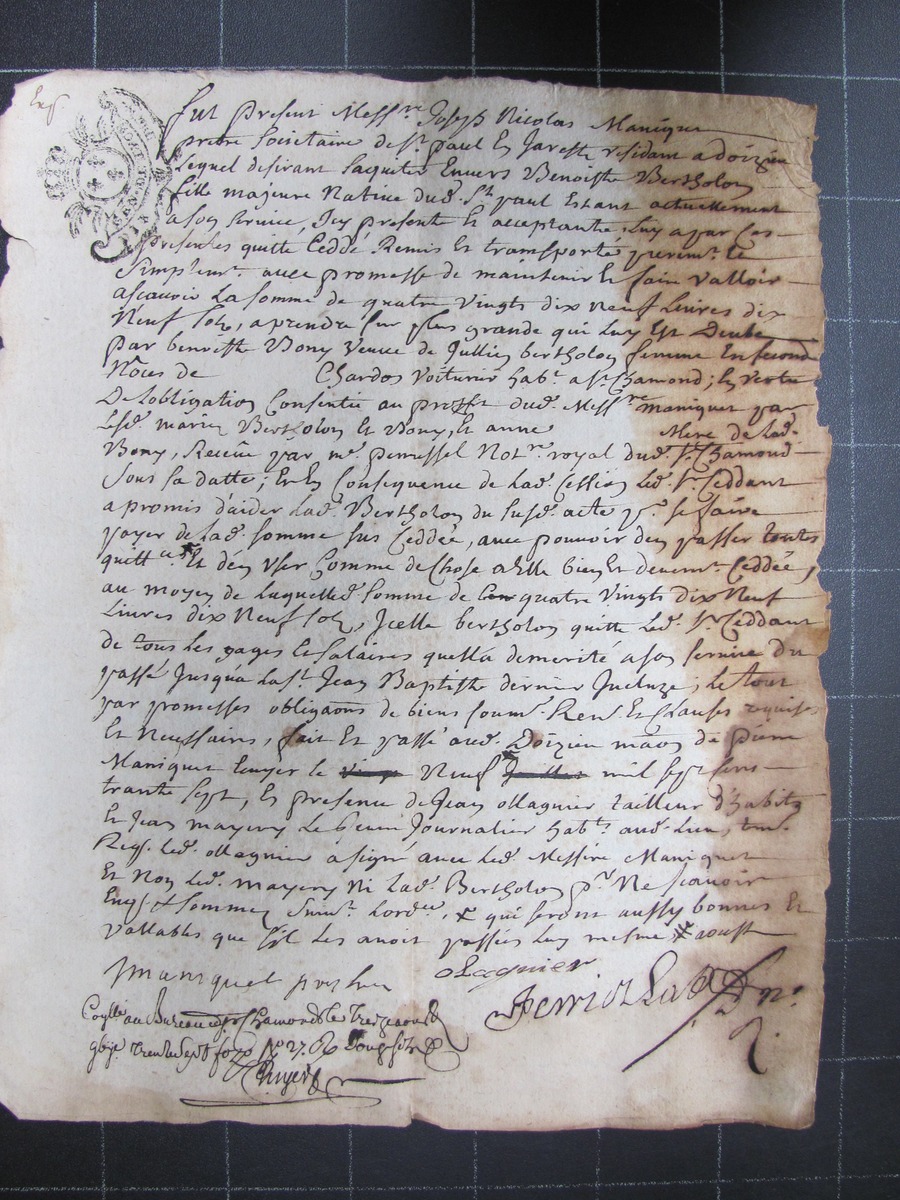 Exp
fut present Mess.re Joseph Nicolas Maniquet
pretre Societaire de s.t paul En Jarest residant a doizieu
lequel desirant saquiter Envers Benoiste Bertholon
fille majeure Native dud. S.t paul Estant actuellement
a son service, Icy presente Et acceptante, luy a par Ces
presentes quitte Ceddé Remis Et transporté purem.t Et
Simplem.t avec promesse de maintenir Et faire valloir
ascavoir La somme de quatre vingts dix neuf Livres dix
Neuf sols, a prendre sur plus grande qui luy Est Deube
par benoiste Bony veuve de Jullien bertholon femme En second
Nôces de Chardon voiturier hab.t a s.t chamond; En vertu
De Lobligation Consentie au proffit dud. Mess.re maniquet par
Lesd. mariés Bertholon Et Bony, Et anne Mere de lad.
Bony, Receüe par m.e perussel Not.re royal dud. S.t Chamond
sous sa datte; Et En Consequence de Lad. Cession Led. S.r Ceddant
a promis d'aider Lad. Bertholon du susd. acte p.r se faire
payer de Lad. somme sus Ceddée, avec pouvoir d'en passer toutes
quitt.ces Et d'en vser Comme de Chose a Elle bien Et deuem.t Ceddée,
au moyen de Laquelle somme de quatre vingts dix Neuf
Livres dix Neuf sols, Icelle bertholon quitte Led. S.r Ceddant
de tous Les gages Et salaires quella demerité a son service du
passé Jusqu'a La s.t Jean Baptiste dernier Incluze; Le tout
par promesses obligaons de biens soum. Ren. Et Clauses requises
Et Necessaires, fait Et passé aud. Doizieu maôn de pierre
Maniquet Le Neuf mil sept cens
trante sept, En presence de Jean ollagnier tailleur d'habits
Et Jean mayery Journalier hab.ts aud. Lieu, tm.
Req. Led. ollagnier a signé avec Led. Messire Maniquet
Et Non Led. mayery Ni Lad. Bertholon p.r Ne scavoir
Enq. Et sommez suiv.t Lord.ce, qui seront aussy bonnes Et
vallables que s'il Les avoit passées luy mesme aoust
maniquet
ollagnier